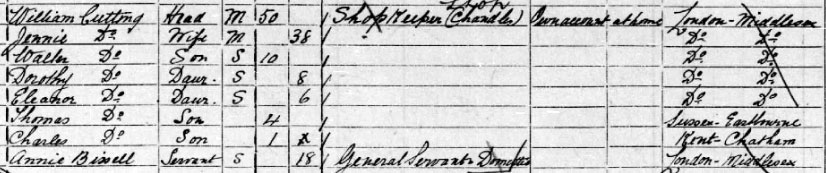 William Cutting Head M 50 Shop Keeper (Chandler) Own account at home London - Middlesex
Jennie Do Wife M 38 Do Do
Walter Do Son S 10 Do Do
Dorothy Do Daur. S 8 Do Do
Eleanor Do Daur. S 6 Do Do
Thomas Do Son 4 Sussex - Eastbourne
Charles Do Son 1 Kent - Chatham
Annie Bissell Servant S 18 General Servant Domestic London - Middlesex